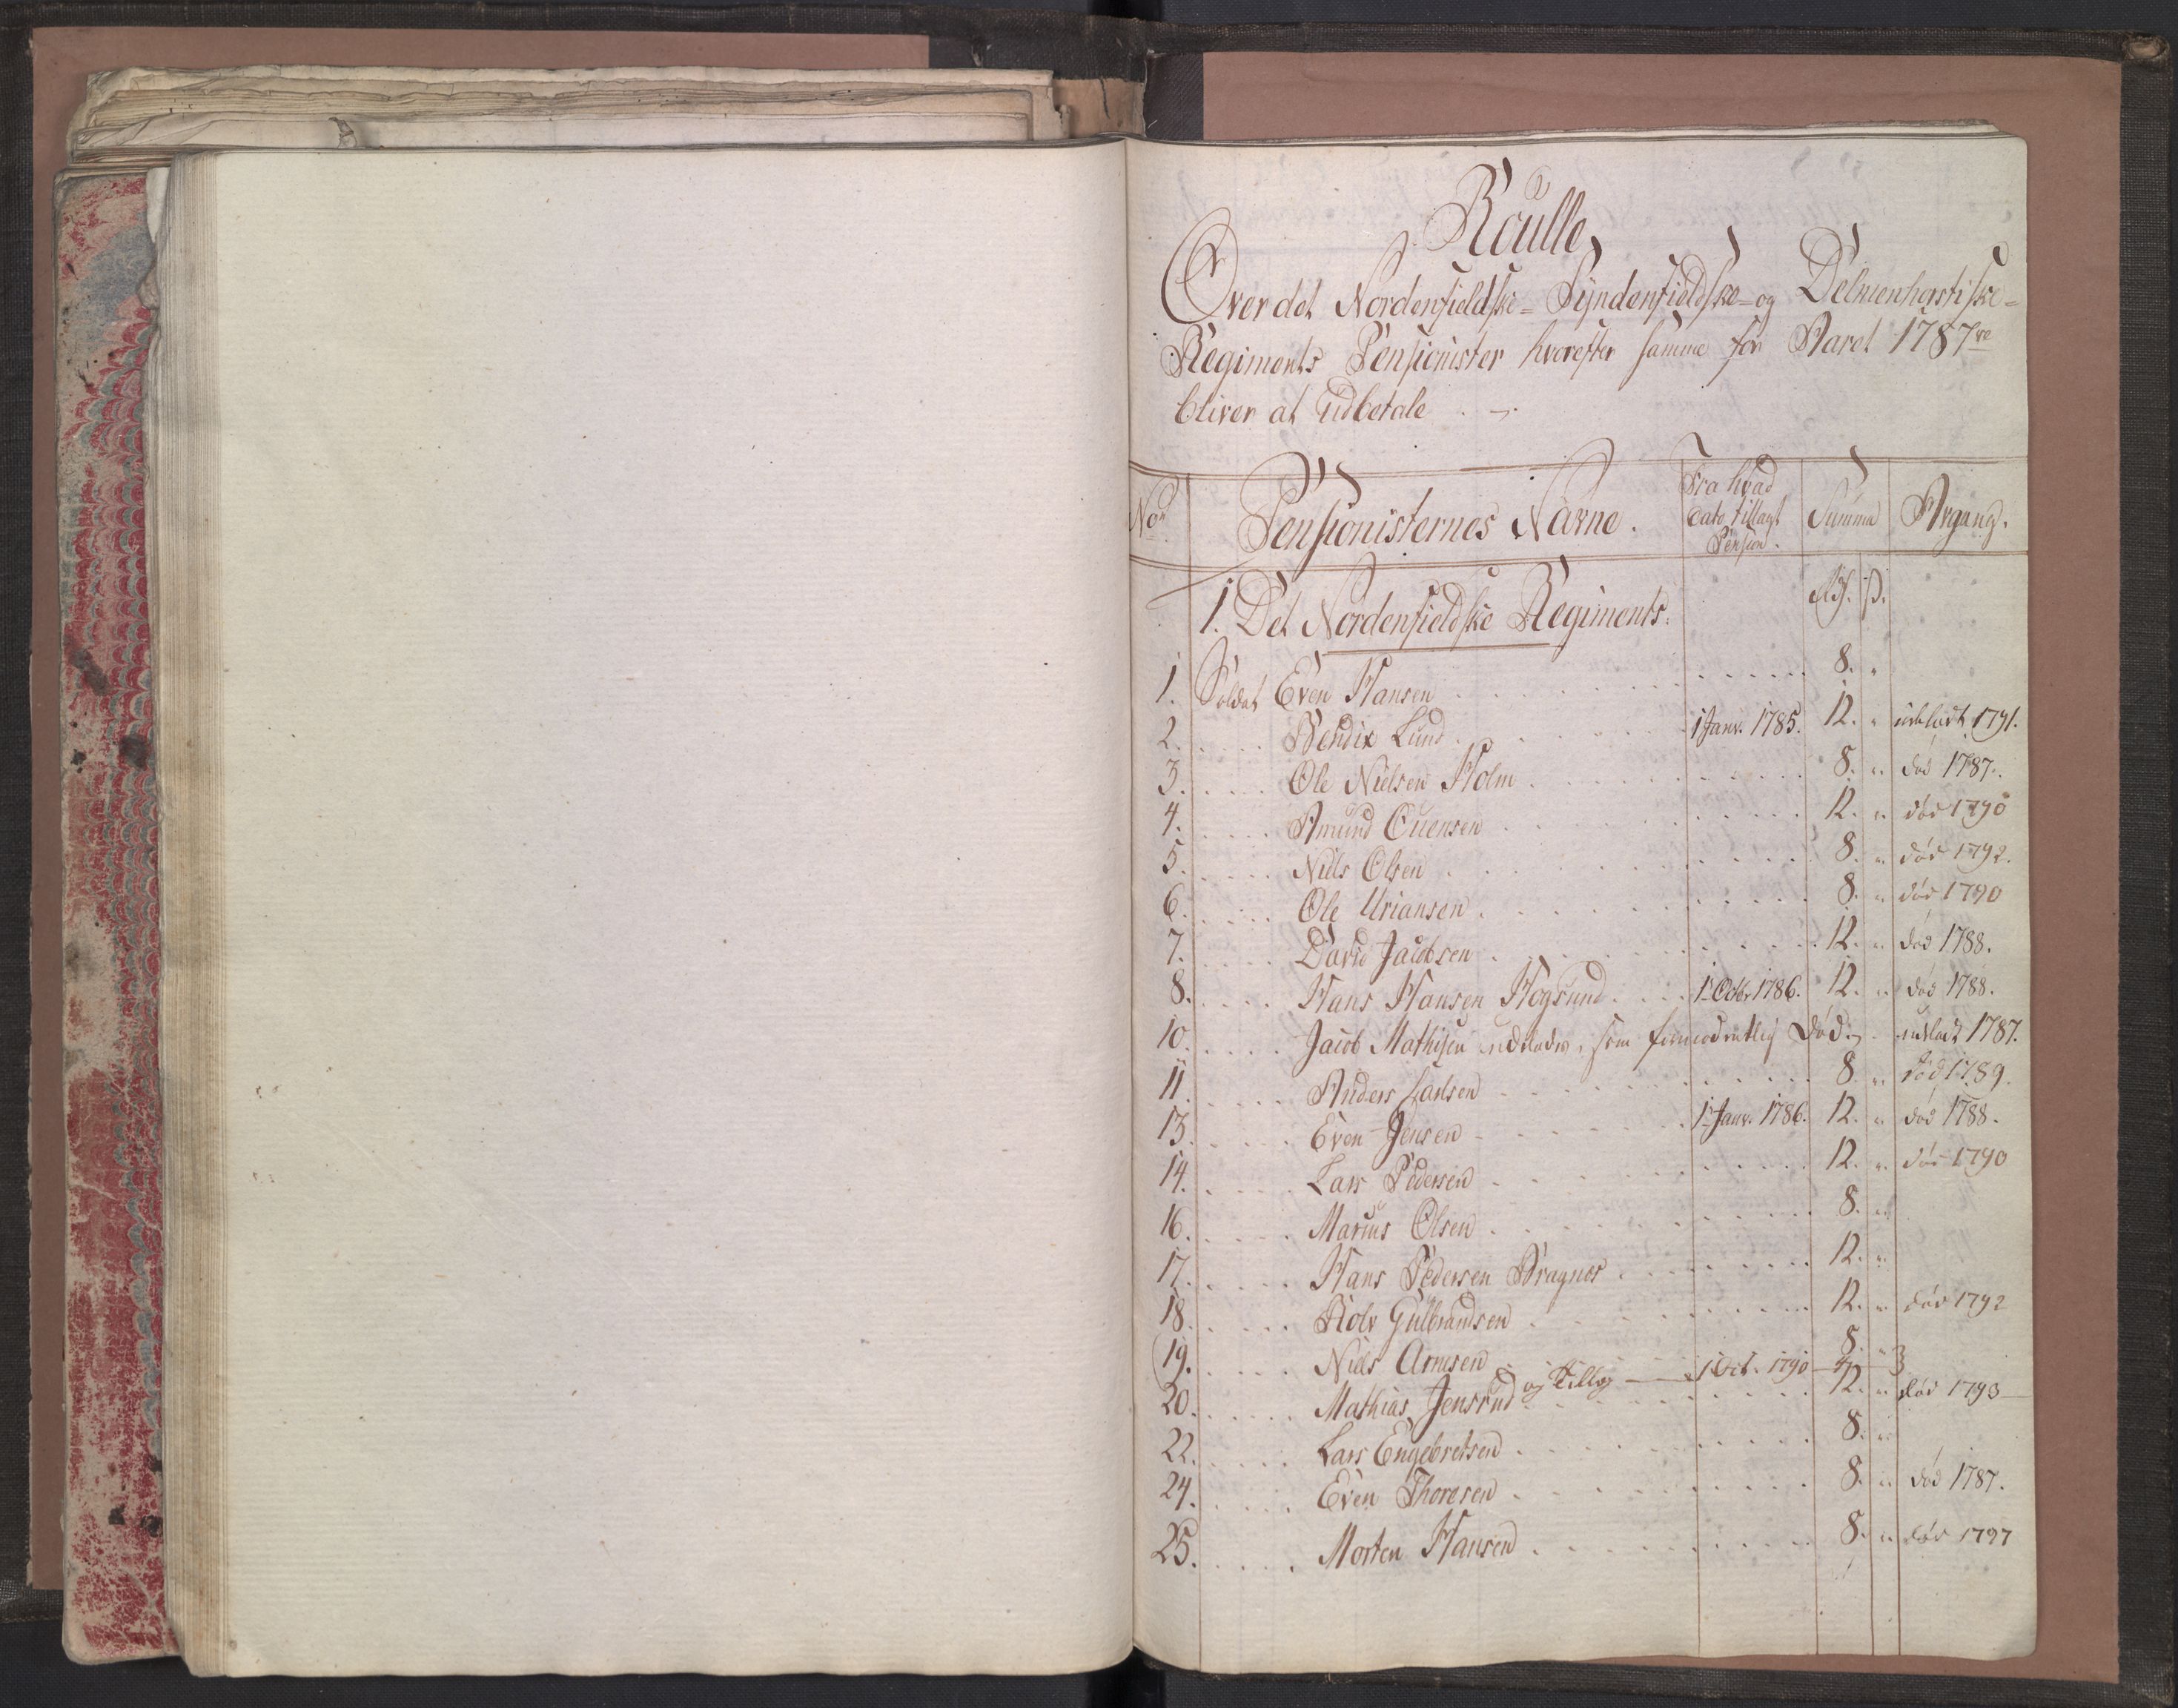 Roulle
Over det Nordenfieldske- Syndenfieldske- og Delmenhorstiske-
Regiments Pensionister hvorefter samme for Aaret 1787
bliver at udbetale
No
Pensionisternes Navne.
Fra hvad
dato tillagt
Pension.
Summa
Afgang.
1. Det Nordenfieldske Regiments.
Rd. s.
1. Soldat Even Hansen 8. "
2. Bendix Lund 1 Janv. 1785. 12. " udeladt 1791.
3. Ole Nielsen Holm 8. " død 1787.
4. Amund Evensen 12. " død 1790
5. Niels Olsen 8. " død 1792.
6. Ole Uriansen 8. " død 1790
7. David Jacobsen 12. " død 1788.
8. Hans Hansen Hogsund 1 Octbr 1786. 12. " død 1788.
10. Jacob Mathisen udelades, som formodentlig død. udeladt 1787.
11. Anders Larsen 8 " død 1789.
13. Even Jensen 1 Janv. 1786. 12. " død 1788.
14. Lars Pedersen 12. " død 1790
16. Marius Olsen 8. "
17. Hans Pedersen Bragnes 12. "
18. Rolv Gulbrandsen 12. " død 1792
19. Niels Arnesen 8. "
og Tillæg 1 Oct. 1790 4 3
20. Mathias Jensrud 12. " død 1793
22. Lars Engebretsen 8. "
24. Even Thoresen 8. " død 1787.
25. Morten Hansen 8. " død 1797